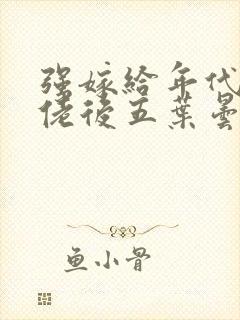 强嫁给年代
佬后五葉曇
鱼小骨